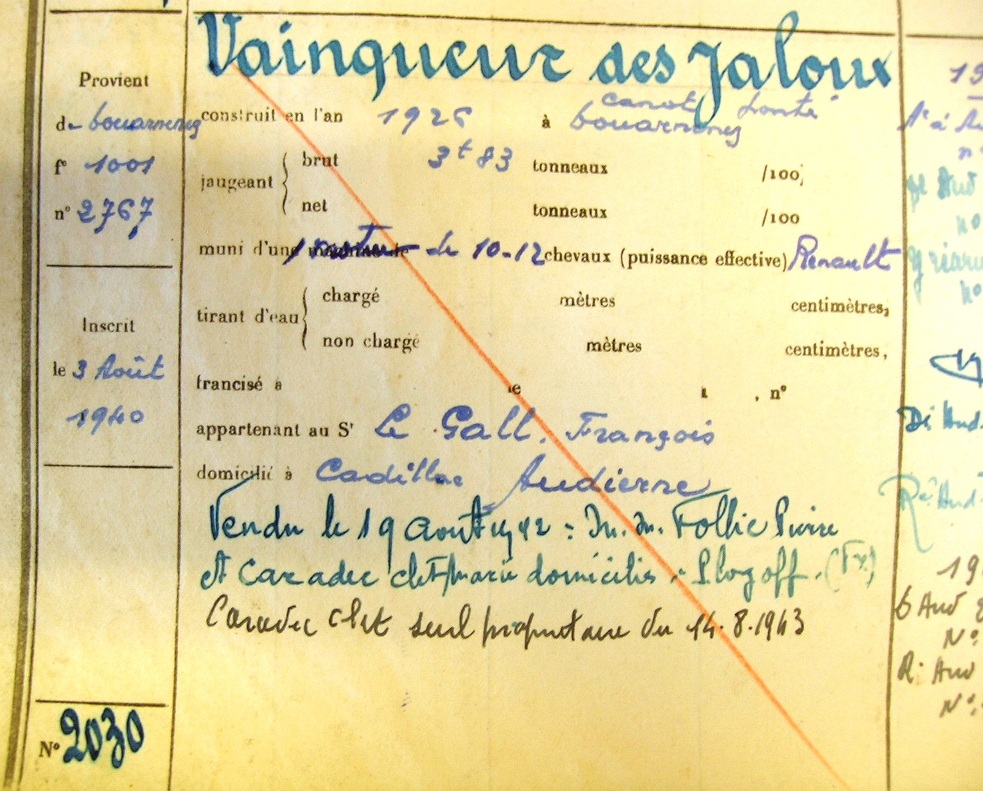 Vainqueur des Jaloux
Provient
de Douarnenez
f° 1001
n° 2767
Inscrit
le 3 Août
1940
N° 2030
canot ponté
construit en l'an 1926 à Douarnenez
jaugeant
brut 3t 83 tonneaux /100
net tonneaux /100
muni d'une 1 moteur de 10-12 chevaux (puissance effective) Renault
tirant d'eau
chargé mètres centimètres,
non chargé mètres centimètres,
francisé à le , n°
appartenant au Sr Le Gall. François
domicilié à Audierne
Vendu le 19 Août 1942 M. M. Follic Pierre
et Caradec domiciliés Plogoff. (Fx)
Caradec seul propriétaire du 14.8.1943